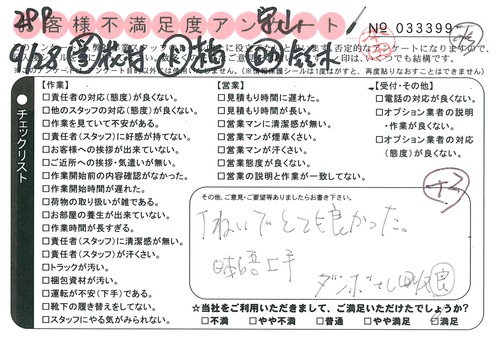 お客様不満足度アンケート
№ 033399
【作業】
□責任者の対応(態度)が良くない。
□他のスタッフの対応(態度)が良くない。
□作業を見ていて不安がある。
□責任者(スタッフ)に好感が持てない。
□お客様への挨拶が出来ていない。
□ご近所への挨拶・気遣いが無い。
□作業開始前の内容確認がなかった。
□作業開始時間が遅れた。
□荷物の取り扱いが雑である。
□お部屋の養生が出来ていない。
□作業時間が長すぎる。
□責任者(スタッフ)に清潔感が無い。
□責任者(スタッフ)が汗くさい。
□トラックが汚い。
□梱包資材が汚い。
□運転が不安(下手)である。
□靴下の履き替えをしてない。
□スタッフにやる気がみられない。
【営業】
□見積もり時間に遅れた。
□見積もり時間が長い。
□営業マンに清潔感が無い。
□営業マンが煙草くさい。
□営業マンが汗くさい。
□営業態度が良くない。
□営業の説明と作業が一致してない。
【受付・その他】
□電話の対応が良くない。
□オプション業者の説明
・作業が良くない。
□オプション業者の対応
(態度)が良くない。
チェックリスト
その他、ご意見・ご要望等ありましたらお書き下さい。
ていねいでとても良かった。
日本語上手
☆当社をご利用いただきまして、ご満足いただけたでしょうか?
□不満 □やや不満 □普通 □やや満足 ☑満足